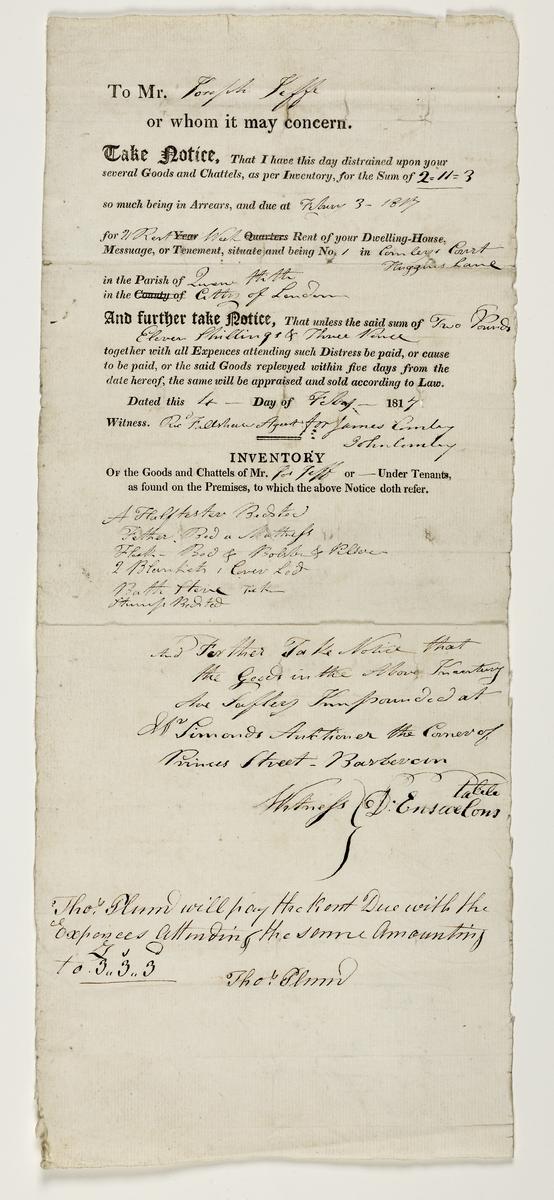 To Mr. Joseph Jeff
or whom it may concern.
Take Notice, That I have this day distrained upon your
several Goods and Chattels, as per Inventory, for the Sum of 2-11-3
so much being in Arrears, and due at Feby 3 - 1817
for Rent Year Week Quarters Rent of your Dwelling-House,
Messuage, or Tenement, situate and being No. 1 in Comleys Court
Huggins Lane
in the Parish of Queen Hith
in the County of Citty of London
And further take Notice, That unless the said sum of Two Pounds
Eleven Shillings & Three Pence
together with all Expences attending such Distress be paid, or cause
to be paid, or the said Goods replevyed within five days from the
date hereof, the same will be appraised and sold according to Law.
Dated this 4 — Day of Feby — 1817
Witness. Agent for James Comley
John Comley
INVENTORY
Of the Goods and Chattels of Mr. Jos Jeff or — Under Tenants,
as found on the Premises, to which the above Notice doth refer.
A Halftester Bedsted
Fether Bed a Mattress
Flock Bed & Bolster & Pillow
2 Blankets 1 Cover Led
Bath Stove
Stump Bedsted
And Further Take Notice that
the Goods in the Above Inventory
Are Safley Impounded at
Mr Simonds Auktioner the Corner of
Princes Street - Barbecan
Witness D.
Thos. Plum will pay the Rent Due with the
Expences Attending the same Amounting
to 3..3..3
Thos. Plum